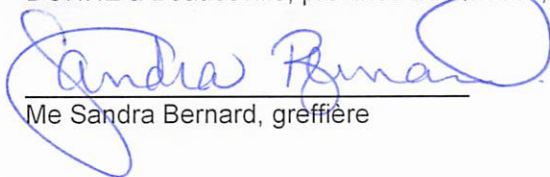 Sandra Bernard
Me Sandra Bernard, greffière